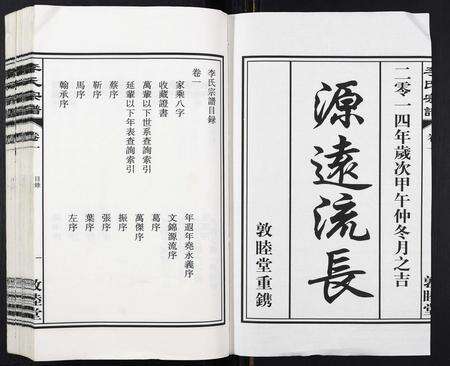 李氏宗譜
卷
敦睦堂
二零一四年歲次甲午仲冬月之吉
源遠流長
敦睦堂重鐫
李氏宗譜目錄
卷一
家乘八字
收藏證書
萬輩以下世系查詢索引
延輩以下年表查詢索引
蔡序
靳序
馬序
翰承序
年遐年堯永義序
文錦源流序
葛序
萬傑序
振序
張序
葉序
左序
李氏宗譜
卷一
目錄
一
敦睦堂